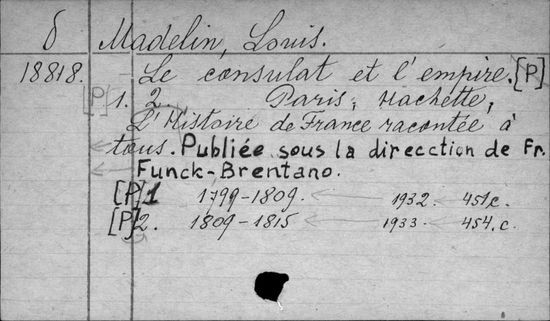 δ Madelin, Louis.
18818. Le consulat et l'empire. [P]
[P] 1. 2. Paris, Hachette,
L'Histoire de France racontée à
tous. Publiée sous la direcction de Fr.
Funck-Brentano.
[P] 1 1799-1809. 1932. 451c.
[P] 2. 1809-1815 1933. 454.c.